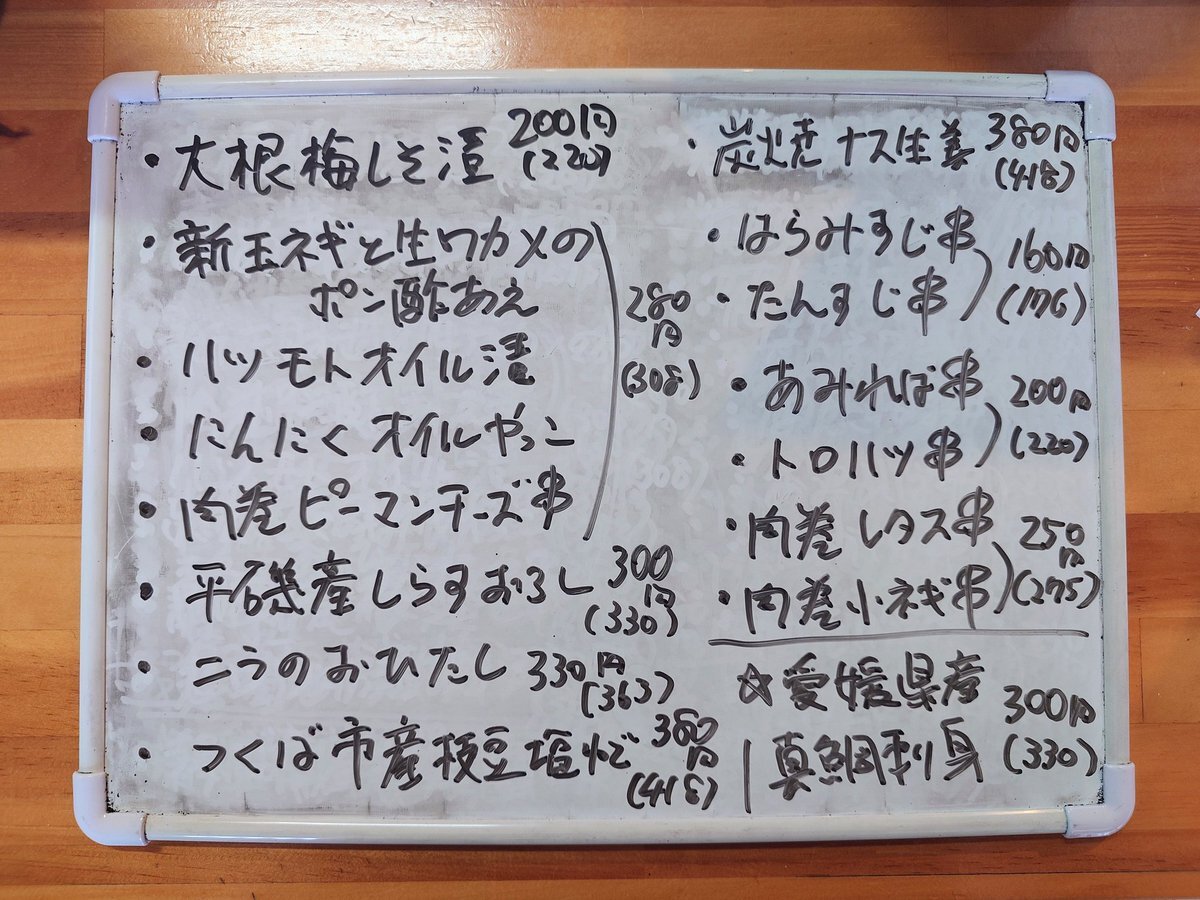 ・大根梅しそ漬 200円
(220)
・新玉ネギと生ワカメの
ポン酢あえ
・ハツモトオイル漬
・にんにくオイルやっこ
・肉巻ピーマンチーズ串
280
円
(308)
・平磯産しらすおろし 300
円
(330)
・こうのおひたし 330円
(363)
・つくば市産枝豆塩ゆで 380
円
(418)
・炭火焼ナス生姜 380円
(418)
・はらみすじ串
・たんすじ串
160円
(176)
・あみれば串
・トロハツ串
200円
(220)
・肉巻レタス串
・肉巻小ネギ串
250
円
(275)
☆愛媛県産
真鯛刺身
300円
(330)